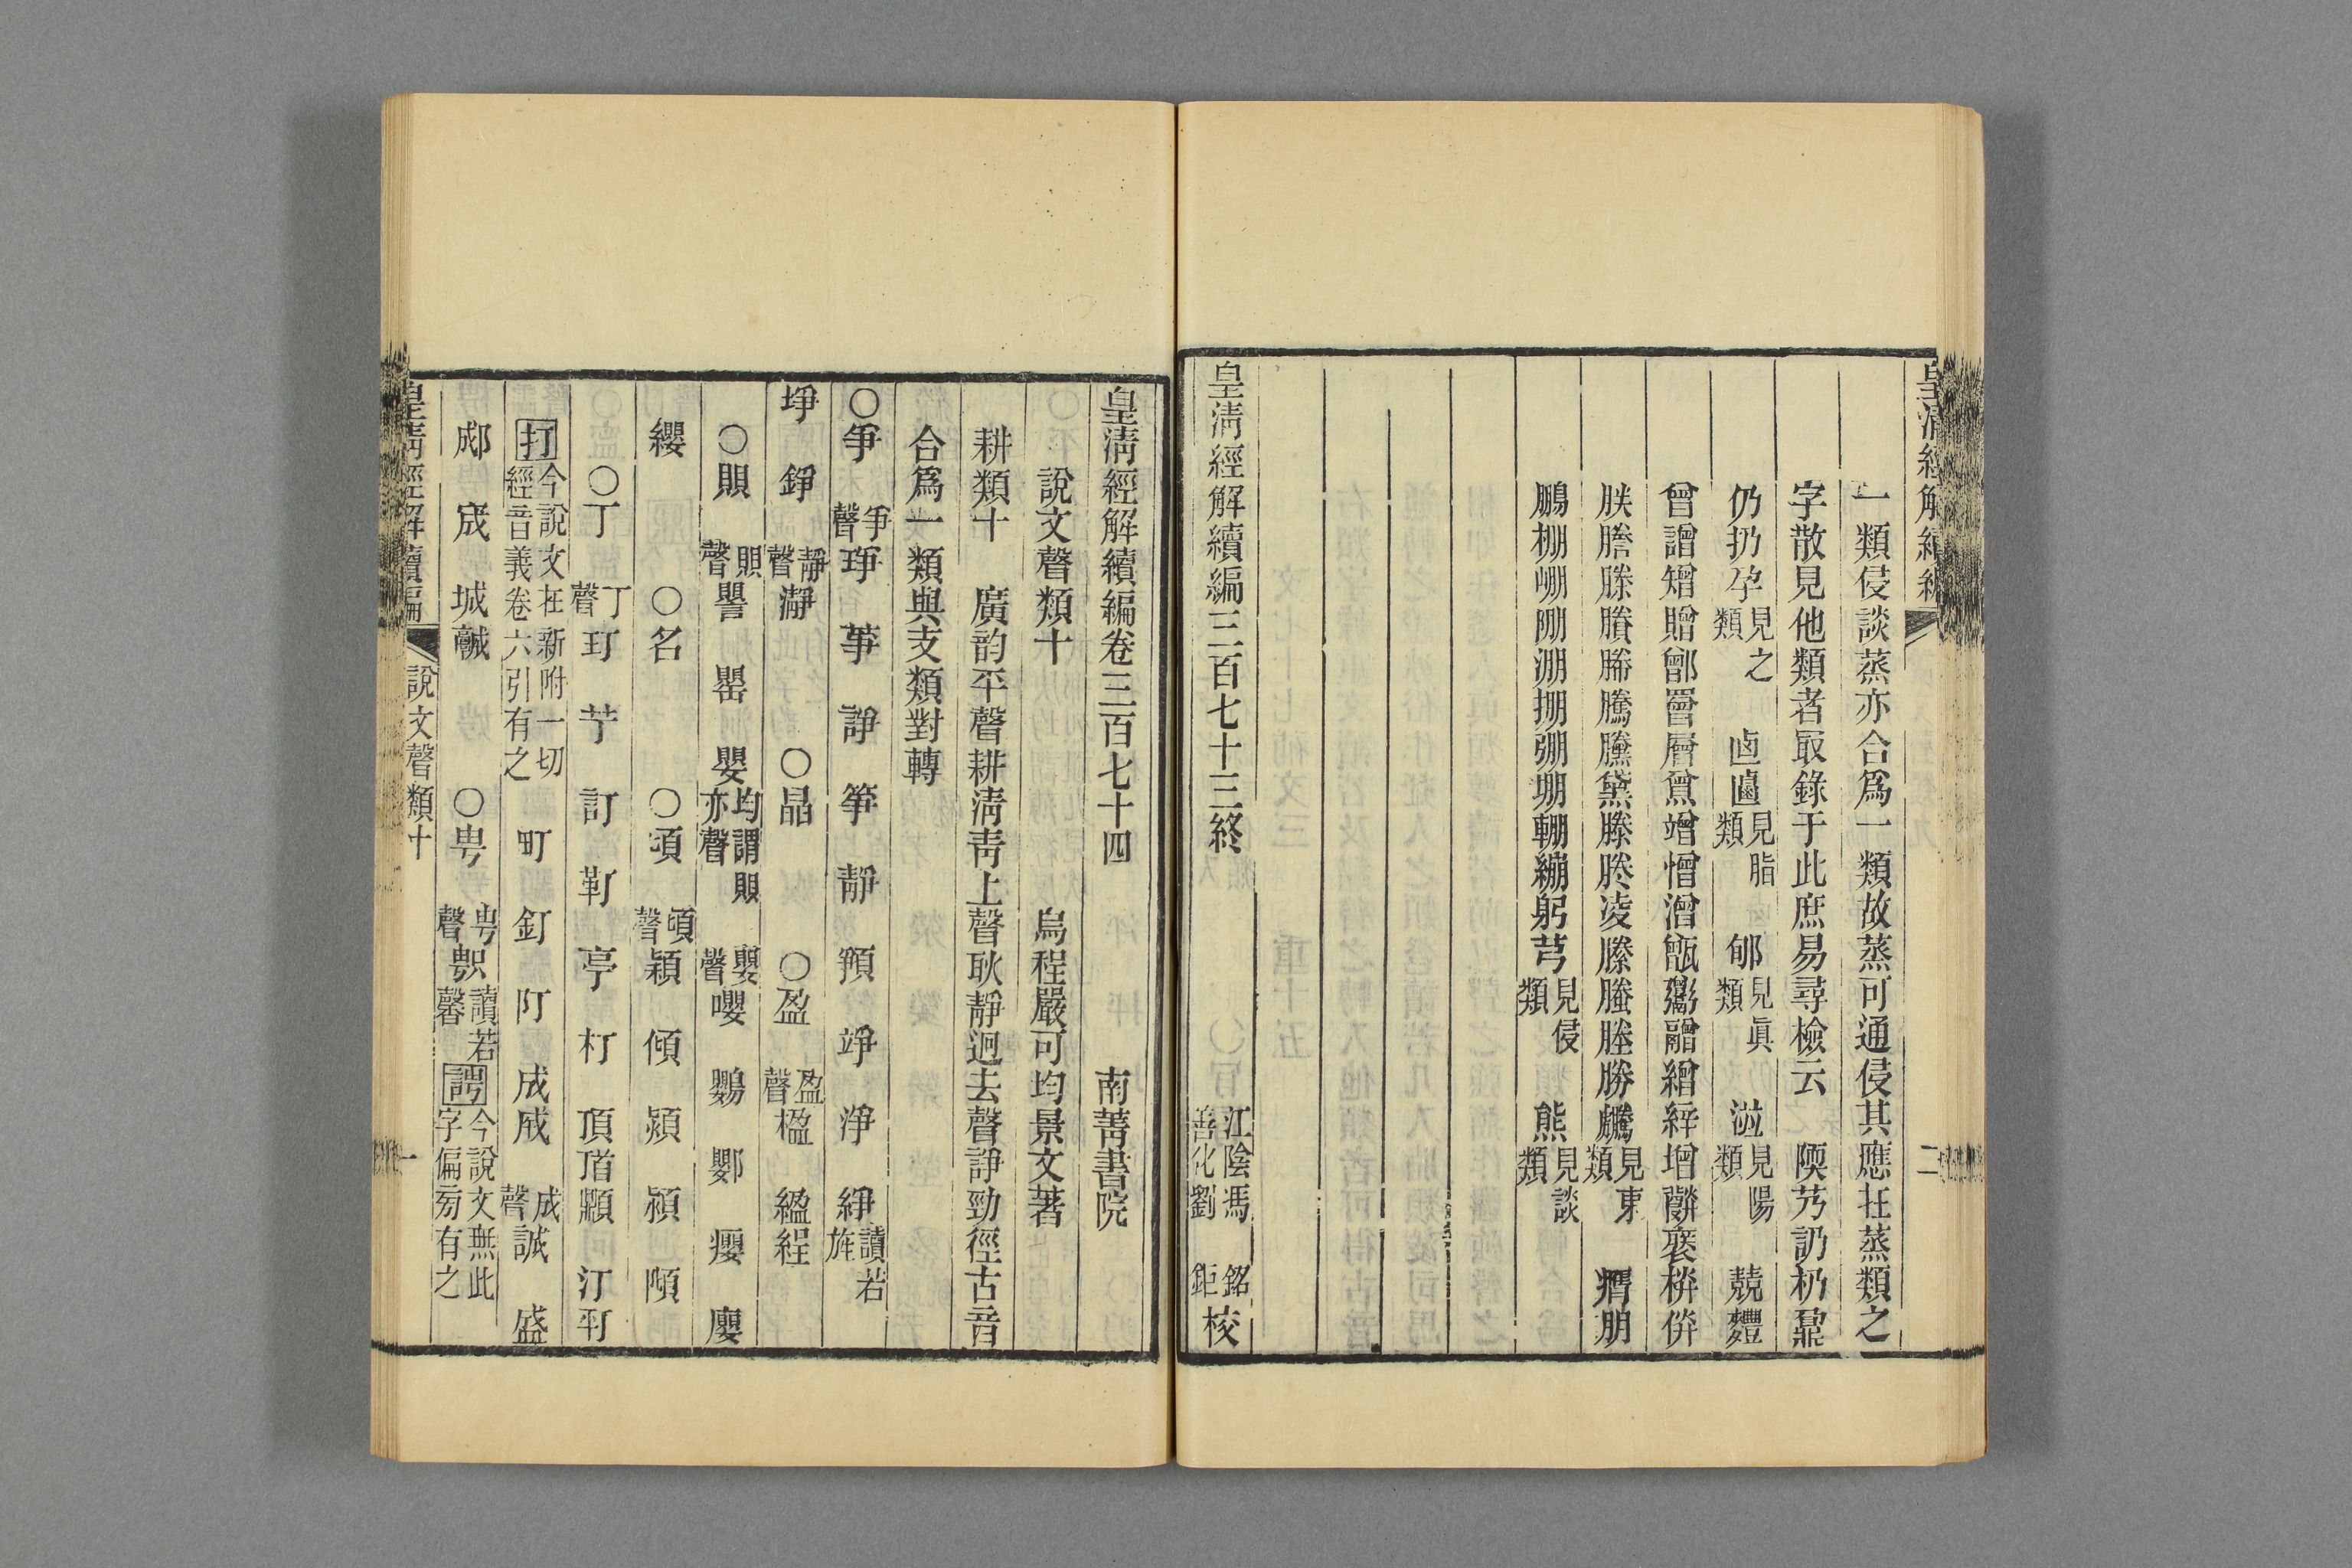 一類侵談蒸亦合爲一類故蒸可通侵其應在蒸類之
字散見他類者最錄于此庶易尋檢云 陾艿訒杒鼐
仍扔孕見之類 卥𠧟見脂類 郇見眞類 㴔見陽類 兢麷
曾譖矰贈鄫罾層竲增憎潧甑鬻䰝繒縡增
朕謄滕賸幐騰黱滕勝凌縢螣塍勝驣見東類 朋
鵬棚堋淜掤弸堋輣繃躬芎見侵類 熊見談類
皇淸經解續編三百七十三終 江陰馮銘善化劉鉅校
皇淸經解續編卷三百七十四 南菁書院
說文聲類十 烏程嚴可均景文著
耕類十 廣韵平聲耕淸靑上聲耿靜迥去聲諍勁徑古音
合爲一類與支類對轉
〇爭爭聲 琤 䇫 諍 箏 靜 頩 竫 淨 綪讀若旌
埩 錚靜聲 瀞 〇晶 〇盈盈聲 楹 縕 䋼
〇賏賏聲 譻 罌 嬰均謂賏亦聲嬰聲 嚶 鸚 鄋 癭 廮
纓 〇名 〇頃頃聲 穎 傾 潁 熲 㯋
〇丁丁聲 玎 艼 訂 靪 亭 朾 頂𩠑顠 汀 㔹
打今說文在新附一切經音義卷六引有之 町 釘 阠 成戚成聲 誠 盛
郕 宬 城𩫨 〇甹甹聲 𠴫讀若馨 䛣今說文無此字偏㫄有之
皇淸經解續編 說文聲類十 一